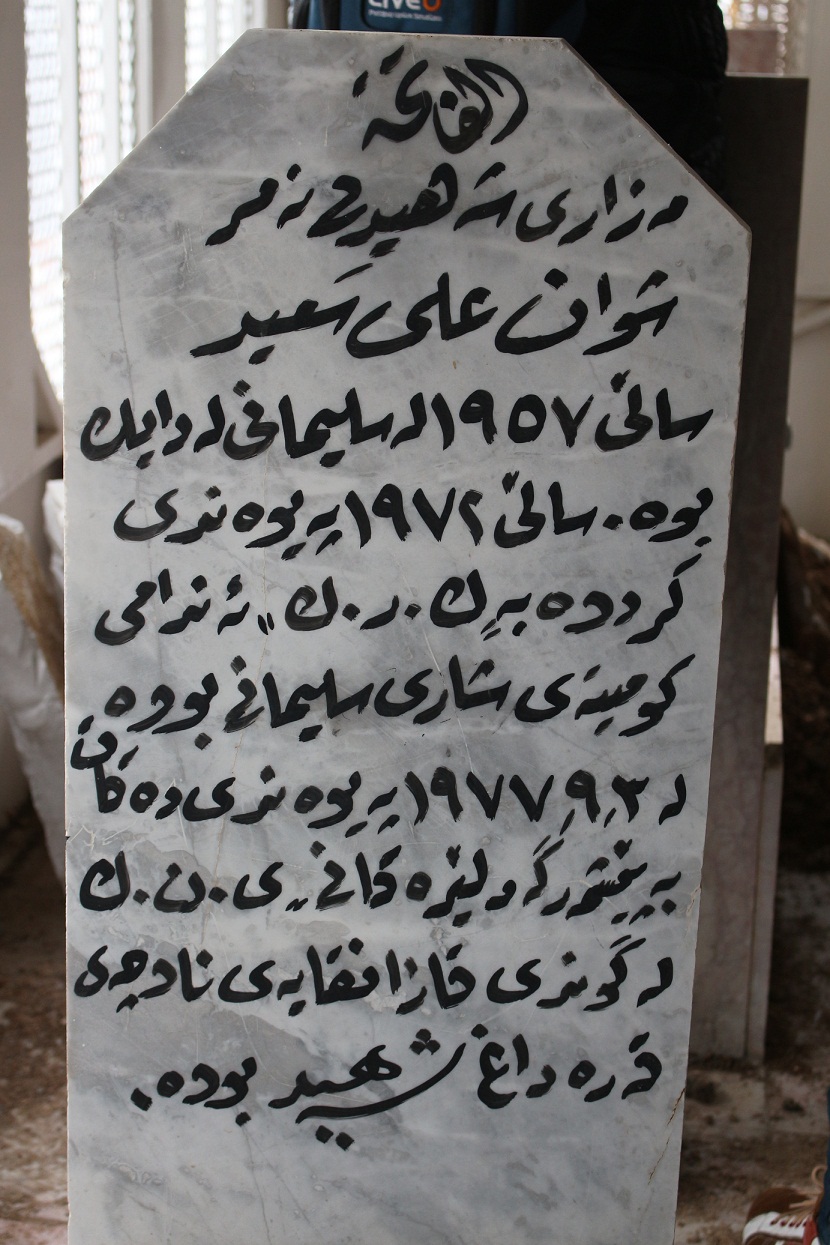 LiveU
الفاتحة
مەزاری شەهیدی نەمر
شوان علی سَعید
ساڵی ١٩٥٧ لە سلیمانی لە دایك
بوە. ساڵی ١٩٧٢ پەیوەندی
كردوە بە ك.د.ك، ئەندامی
كومیتەی شاری سلیمانی بووە
لە ١٩٧٧٫٩٫٣ پەیوەندی دەكات
بە پێشمەرگە دلێرەكانی ی.ن.ك
لە گوندی قازانقایەی ناوچەی
قەرەداغ شهید بووە.